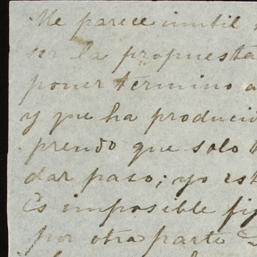 Me parece inutil
ver la propuesta
poner termino a
y que ha producid
prendo que solo
dar paso; yo est
Es imposible fi
por otra parte